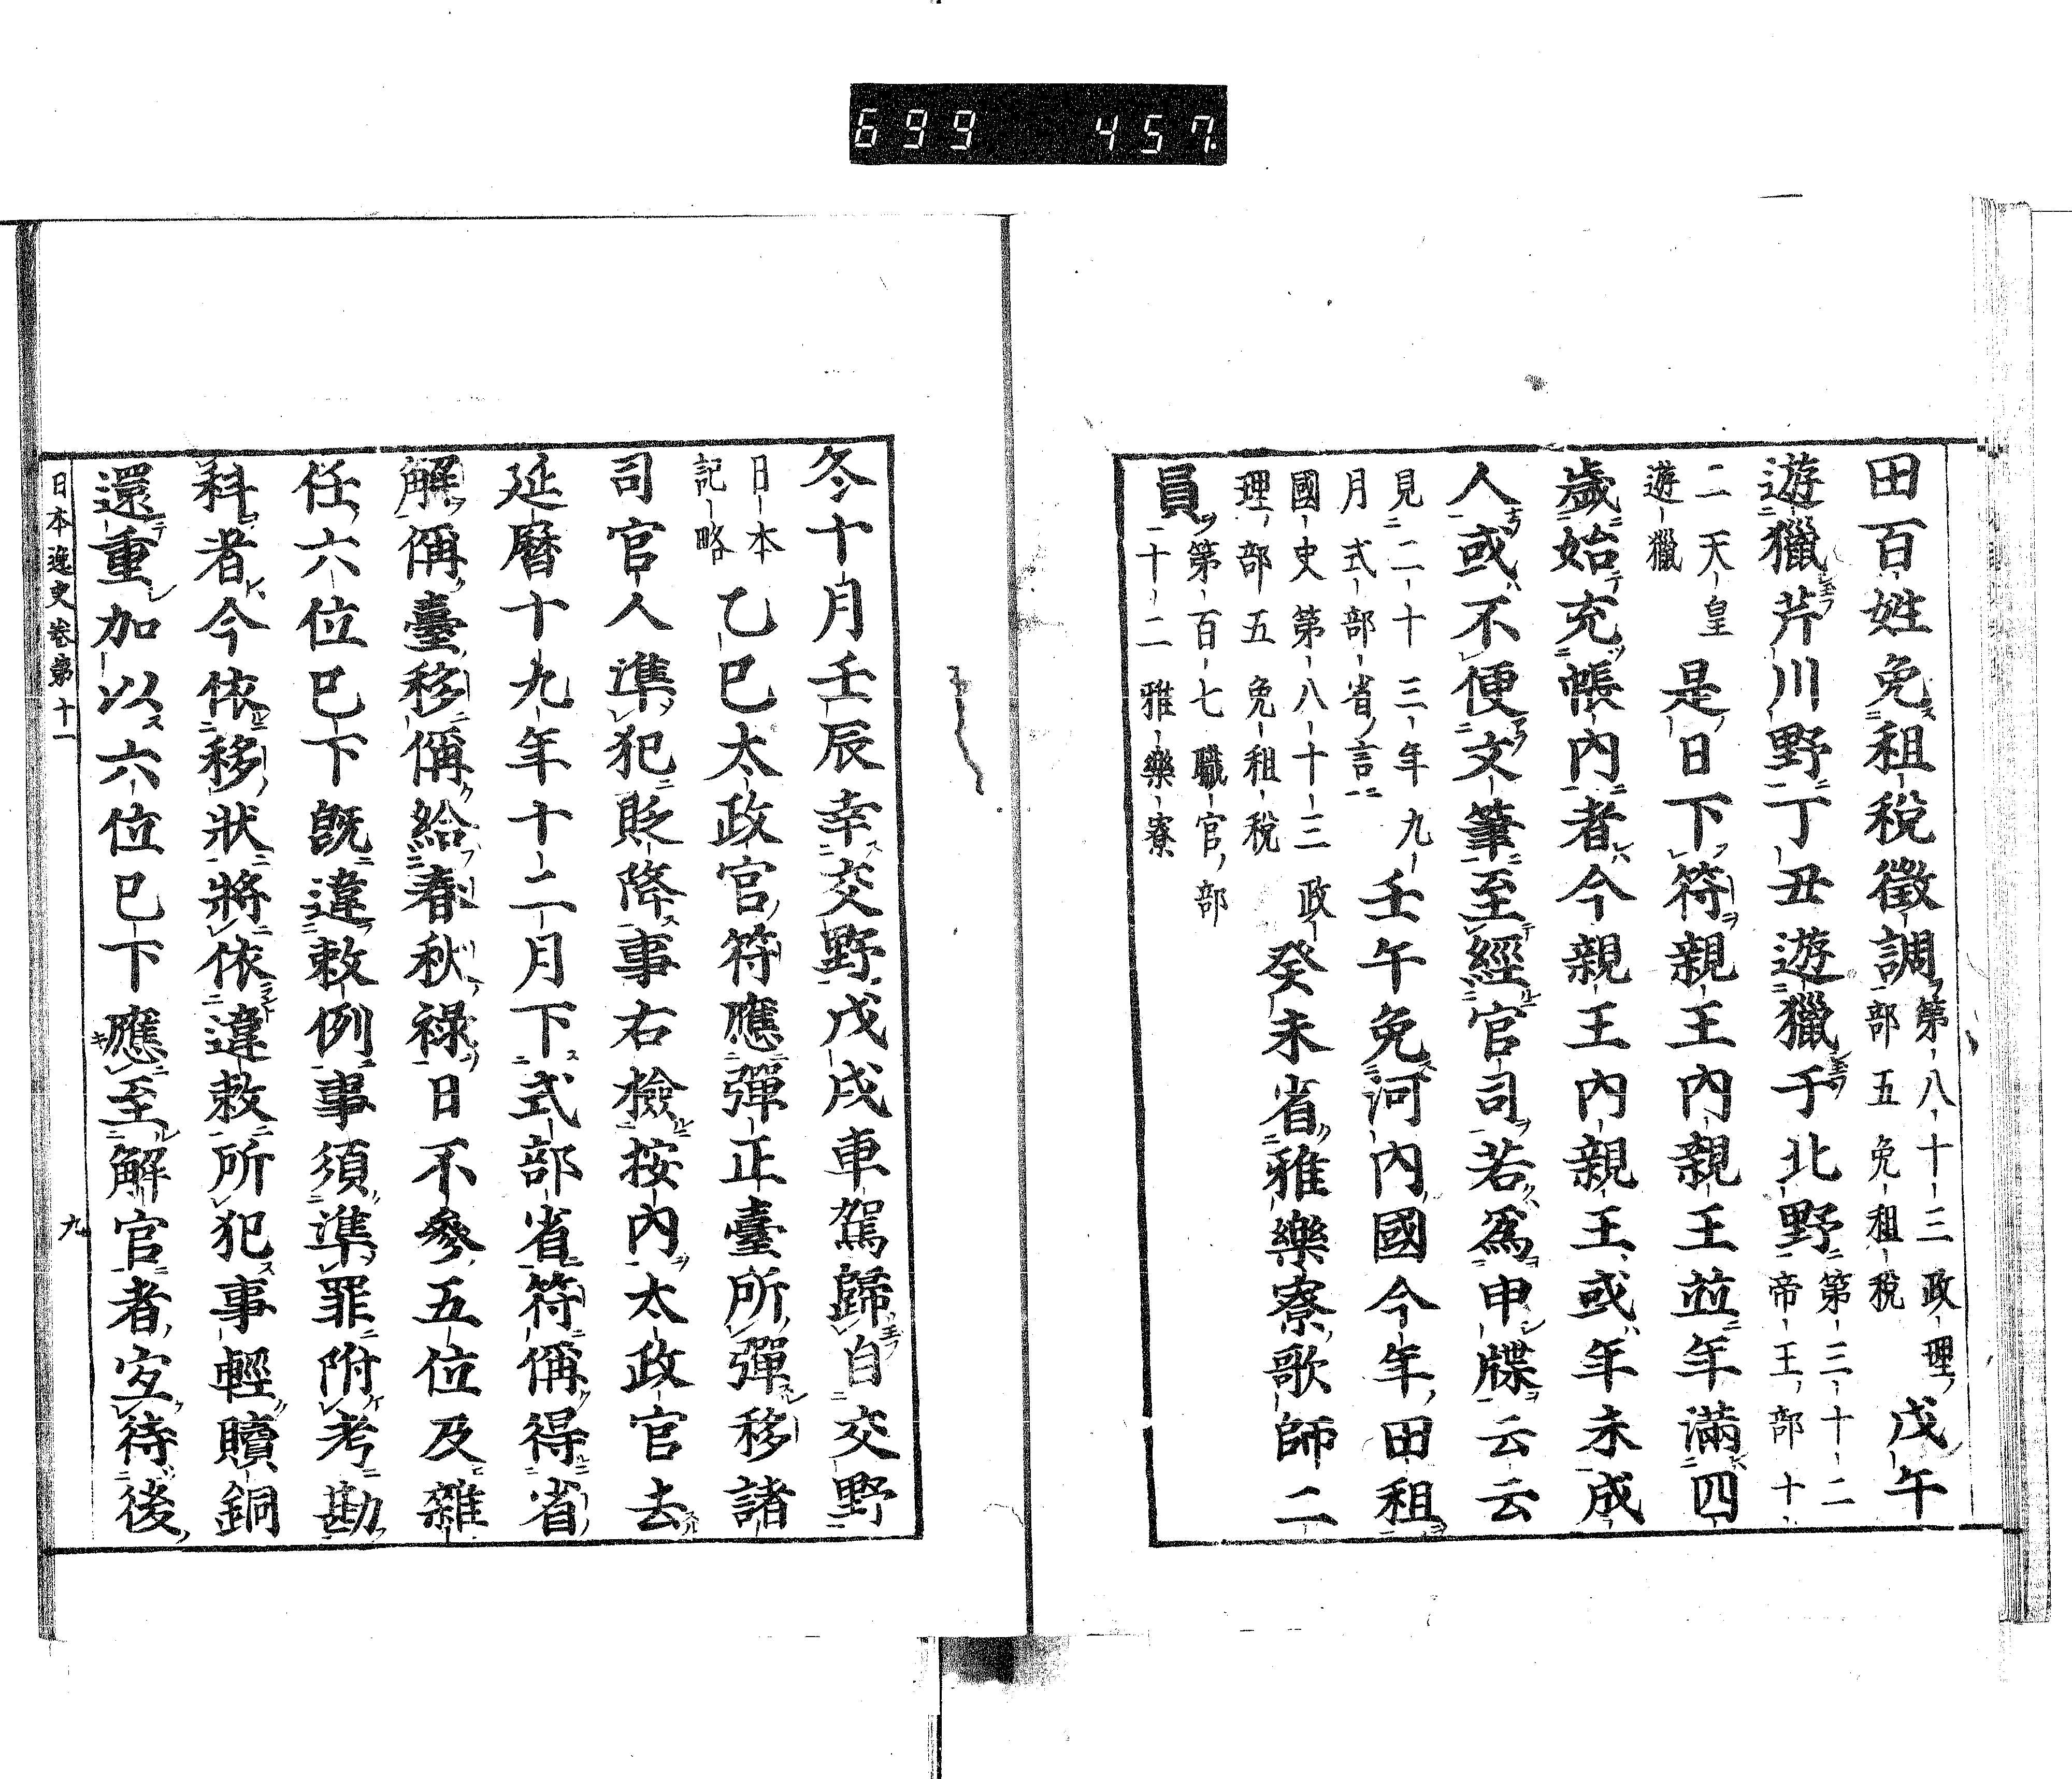 699 457
田百姓免租税徵調第八十三政理部五免租税戊午
遊獵芹川野丁丑遊獵于北野第三十二帝王部十
二天皇遊獵是日下符親王內親王並年滿四
歲始充帳內者今親王內親王或年未成
人或不便文筆至經官司若爲申牒云云
見二十三年九月式部省言壬午免河內國今年田租
國史第八十三政理部五免租税癸未省雅樂寮歌師二
員第百七職官部一十二雅樂寮
冬十月壬辰幸交野戊戌車駕歸自交野
日本記略乙巳太政官符應彈正臺所彈移諸
司官人準犯貶降事右檢按內太政官去
延曆十九年十二月下式部省符偁得省
解偁臺移偁給春秋祿日不參五位及雜
任六位已下旣違敕例事須準罪附考勘
科者今依移狀將依違敕所犯事輕贖銅
還重加以六位已下應至解官者宐待後
日本逸史卷第十一 九